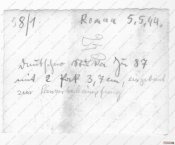 98/1 Roman 5.5.44.
Deutscher Stuka Ju 87
mit 2 Pak 3,7cm, eingebaut
zur Panzerbekämpfung